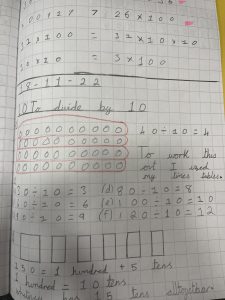 26 x 100
32 x 100 = 32 x 10 x 10
= 3 x 100
18-11-22
To divide by 10
40 ÷ 10 = 4
To work this
out I used
my times tables.
30 ÷ 10 = 3 (d) 80 ÷ 10 = 8
60 ÷ 10 = 6 (e) 100 ÷ 10 = 10
90 ÷ 10 = 9 (f) 120 ÷ 10 = 12
150 = 1 hundred + 5 tens
1 hundred = 10 tens
has 5 tens altogether